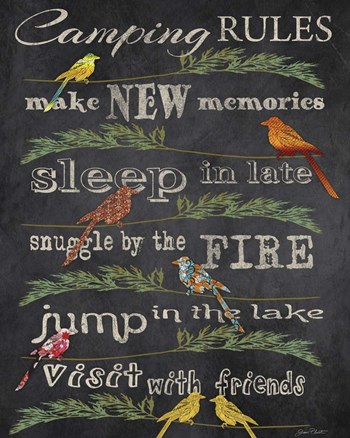 Camping RULES
make NEW memories
sleep in late
snuggle by the FIRE
jump in the lake
visit with friends